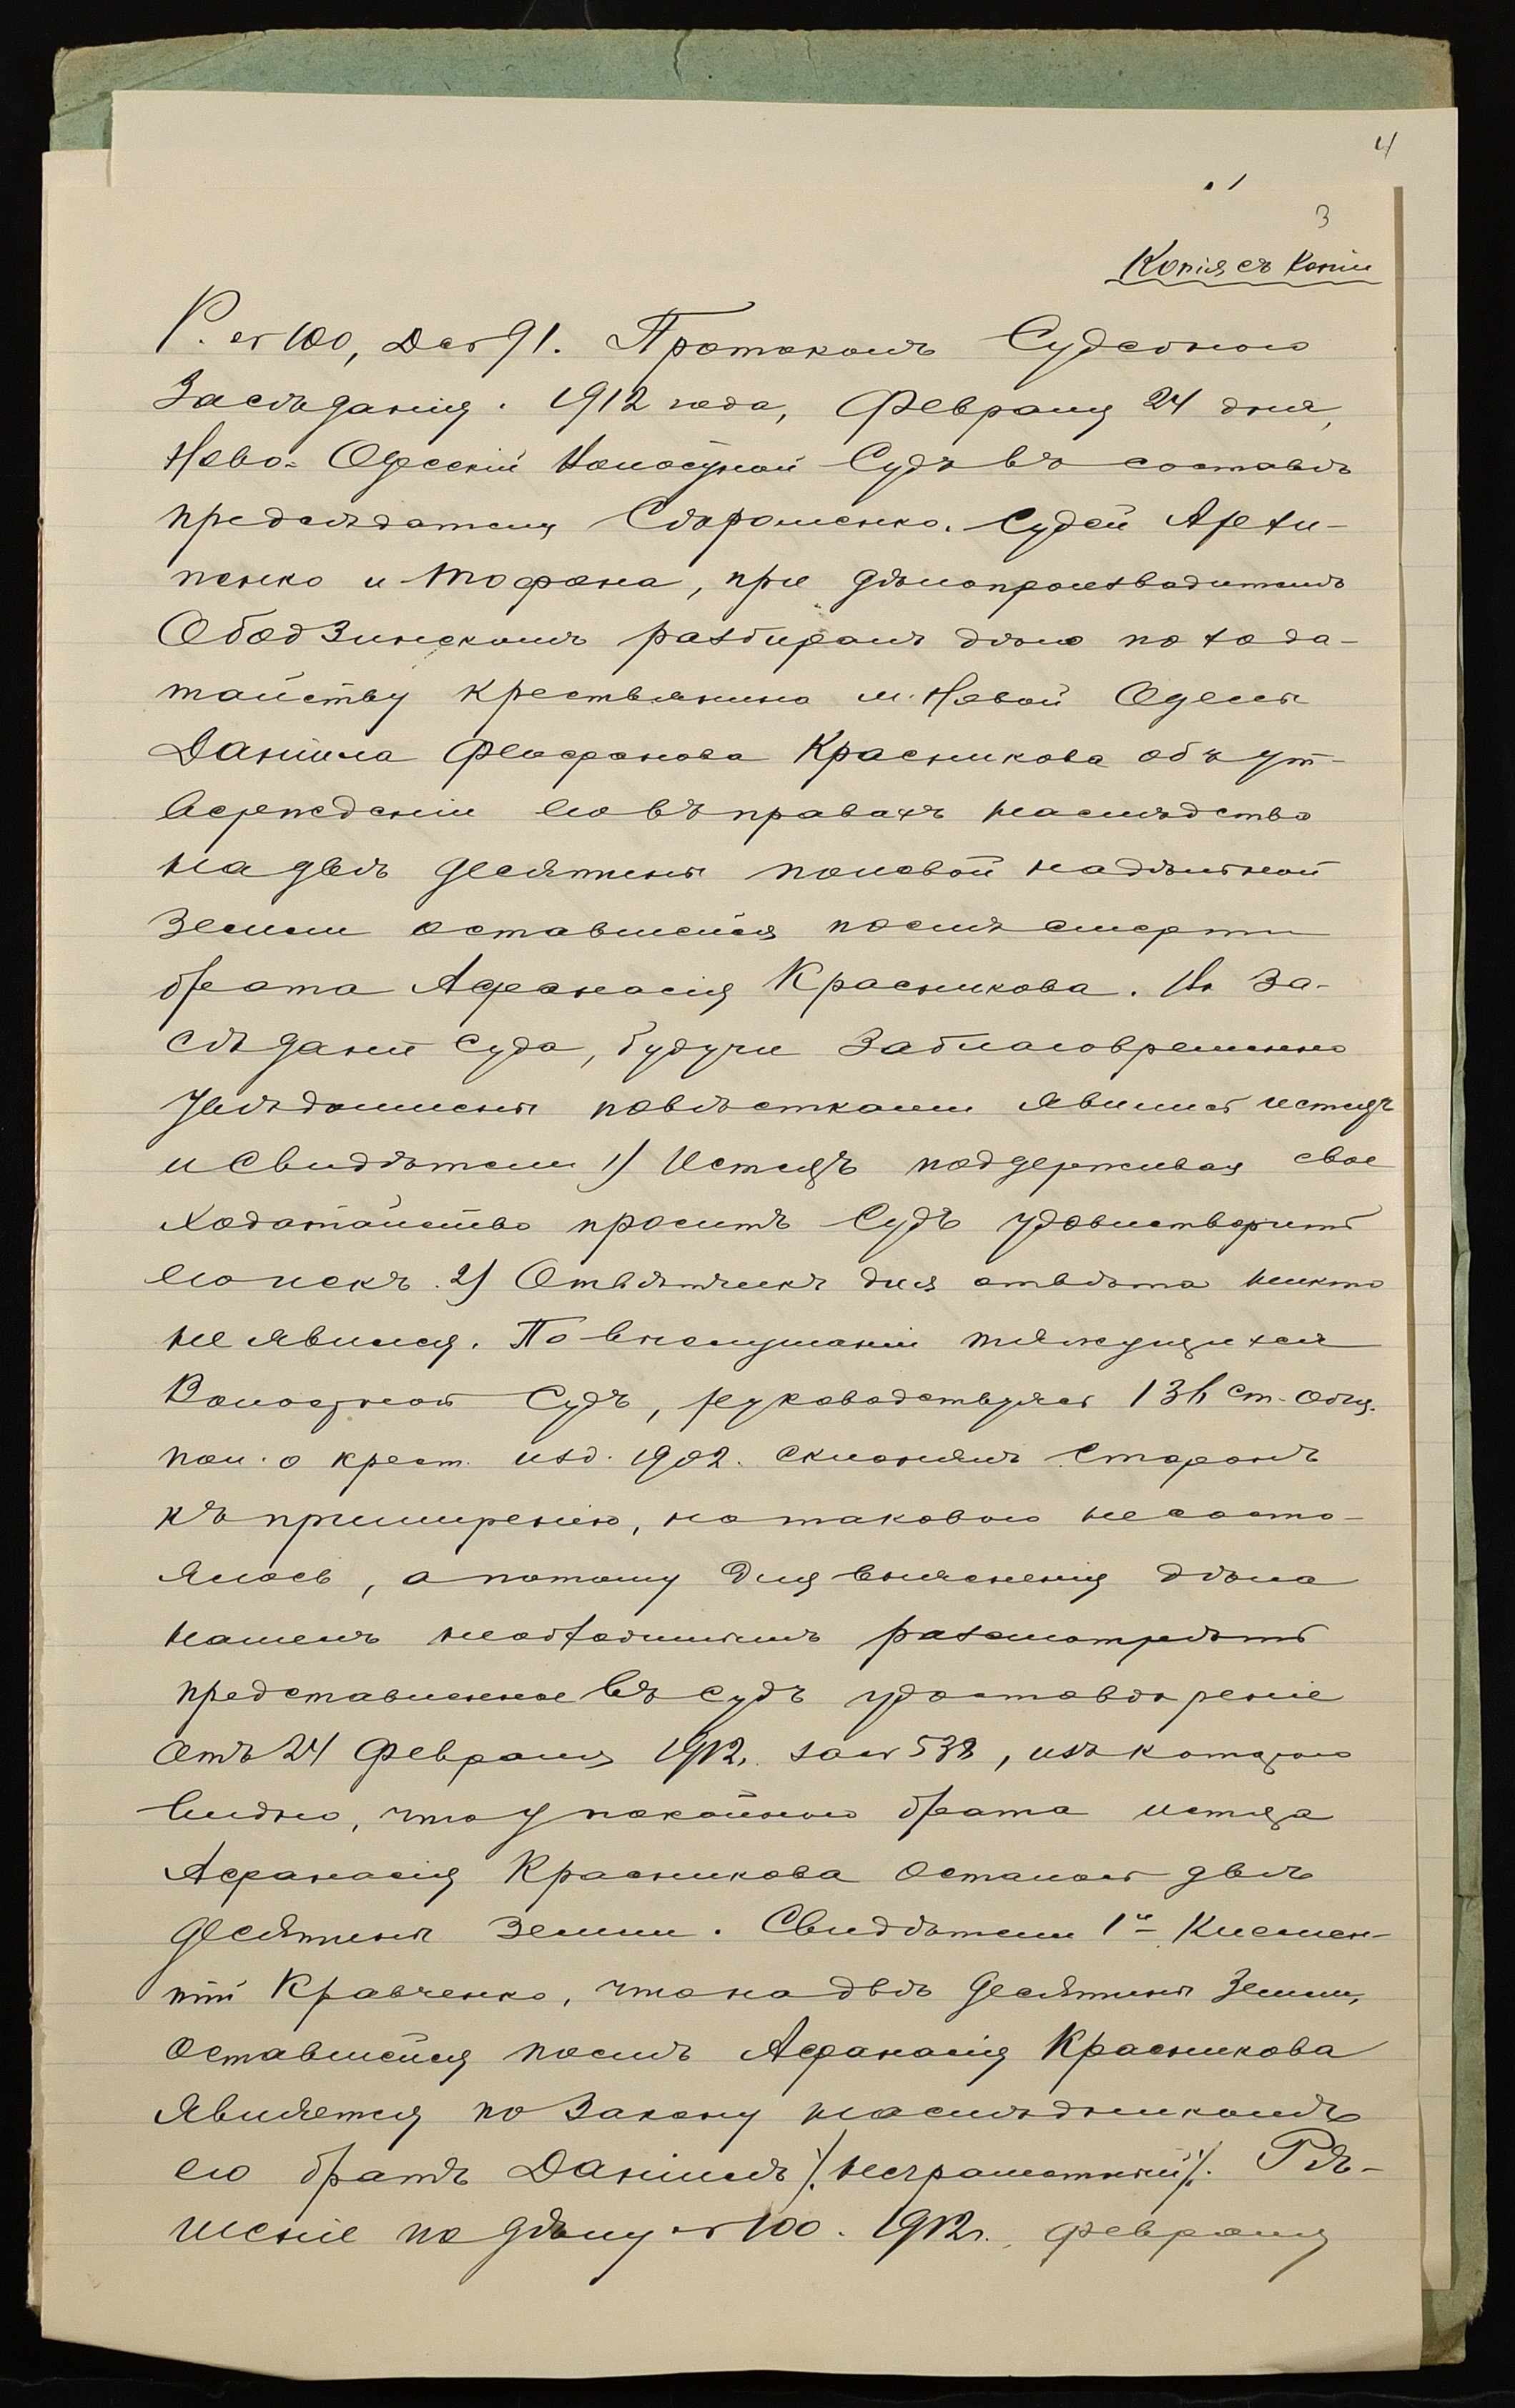 4
3
Копія съ копіи
Р. № 100, Д № 91. Протоколъ Судебного
Засѣданія. 1912 года, Февраля 24 дня,
Ново-Одесскій Волостной Судъ въ составѣ
предсѣдателя Сторошенко. Судей Архи-
пенко и Тофана, при дѣлопроизводителѣ
Ободзинскомъ разбиралъ дѣло по хода-
тайству крестьянина м. Новой Одессы
Даніила Феофанова Красникова объ ут-
вержденіи его въ правахъ наслѣдства
на двѣ десятины полевой надѣльной
земли оставшейся послѣ смерти
брата Афанасія Красникова. Въ за-
сѣданіи суда, будучи заблаговременно
увѣдомлены повѣстками явились истецъ
и свидѣтели 1) Истецъ поддерживая свое
ходатайство проситъ Судъ удовлетворить
его искъ. 2) Отвѣтчикъ для отвѣта никто
не явился. По выслушаніи тяжущихся
Волостной Судъ, руководствуясь 136 ст. общ.
пол. о крест. изд. 1902. склонялъ Сторонъ
къ примиренію, но такового не состо-
ялось, а потому для выясненія дѣла
нашелъ необходимымъ разсмотрѣть
представленное въ судъ удостовѣреніе
отъ 24 Февраля 1912. за № 538, изъ которого
видно, что у покойного брата истца
Афанасія Красникова осталось двѣ
десятины земли. Свидѣтели 1й Клемен-
тій Кравченко, что на двѣ десятины земли,
оставшейся послѣ Афанасія Красникова
является по закону наслѣдникомъ
его братъ Даніилъ /:неграмотный:/. Рѣ-
шеніе по дѣлу № 100. 1912г. февраля